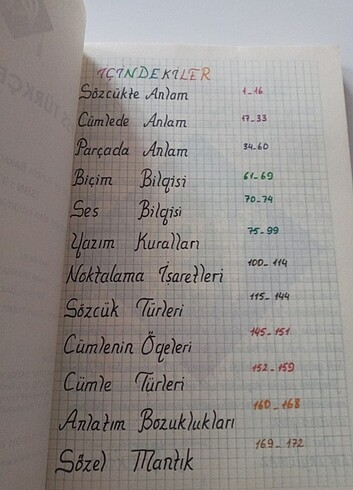 İÇİNDEKİLER
Sözcükte Anlam 1-16
Cümlede Anlam 17-33
Parçada Anlam 34-60
Biçim Bilgisi 61-69
Ses Bilgisi 70-74
Yazım Kuralları 75-99
Noktalama İşaretleri 100-114
Sözcük Türleri 115-144
Cümlenin Öğeleri 145-151
Cümle Türleri 152-159
Anlatım Bozuklukları 160-168
Sözel Mantık 169-172